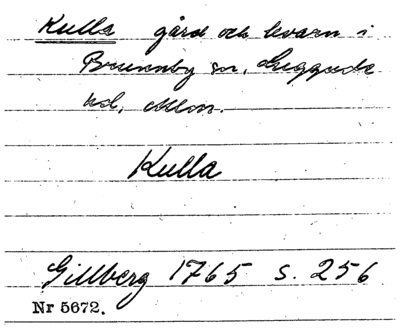 Kulla gård och kvarn i
Brunnby sn, Luggude
hd, Mlm.
Kulla
Gillberg 1765 s. 256
Nr 5672.